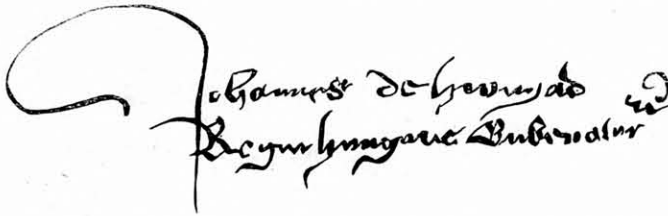 Johannes de hwnyad
Regni hungarie Gubernator